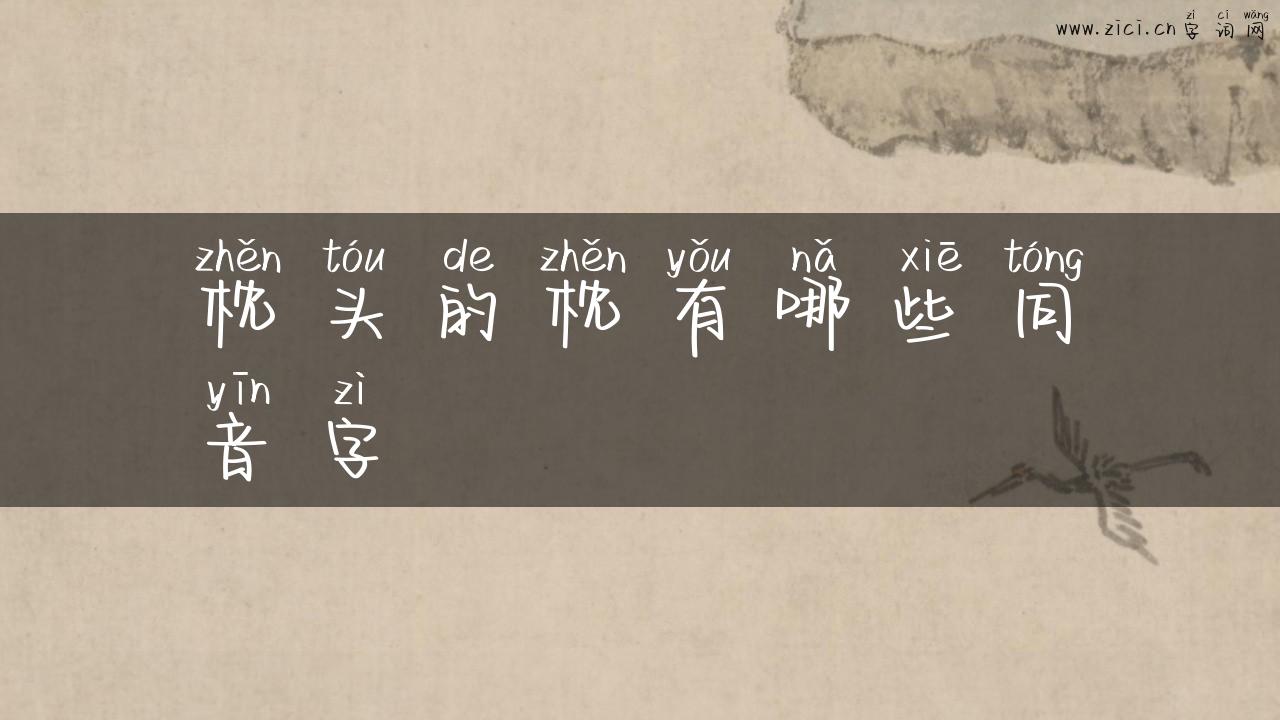 zì cí wǎng
www.zici.cn 字词网
zhěn tóu de zhěn yǒu nǎ xiē tóng
枕头的枕有哪些同
yīn zì
音字